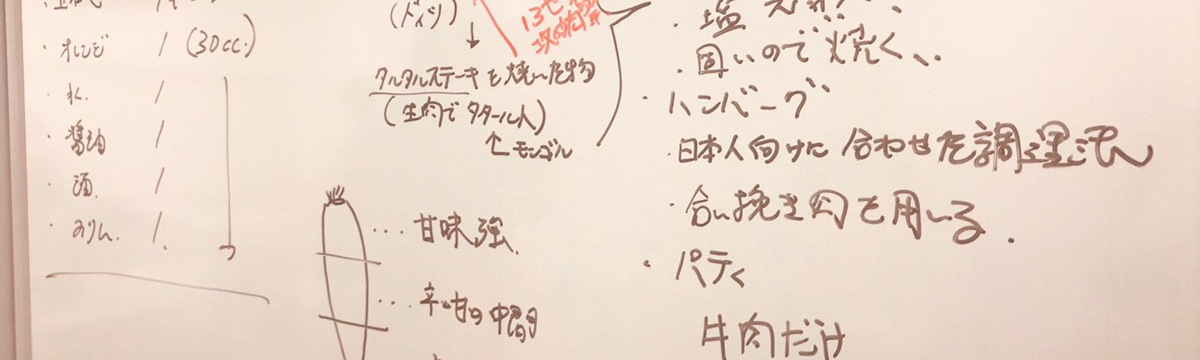 ・オレンジ 1 (30cc.)
・水. 1
・醤油 1
・酒. 1
・みりん. 1.
(ドイツ)
↓
タルタルステーキを焼いた物
(生肉で タタール人)
↑モンゴル
13世
… 甘味強.
… 辛甘の中間
・塩
・固いので焼く、、
・ハンバーグ
・日本人向けに合わせた調理法
・合い挽き肉を用いる.
・パティ
牛肉だけ